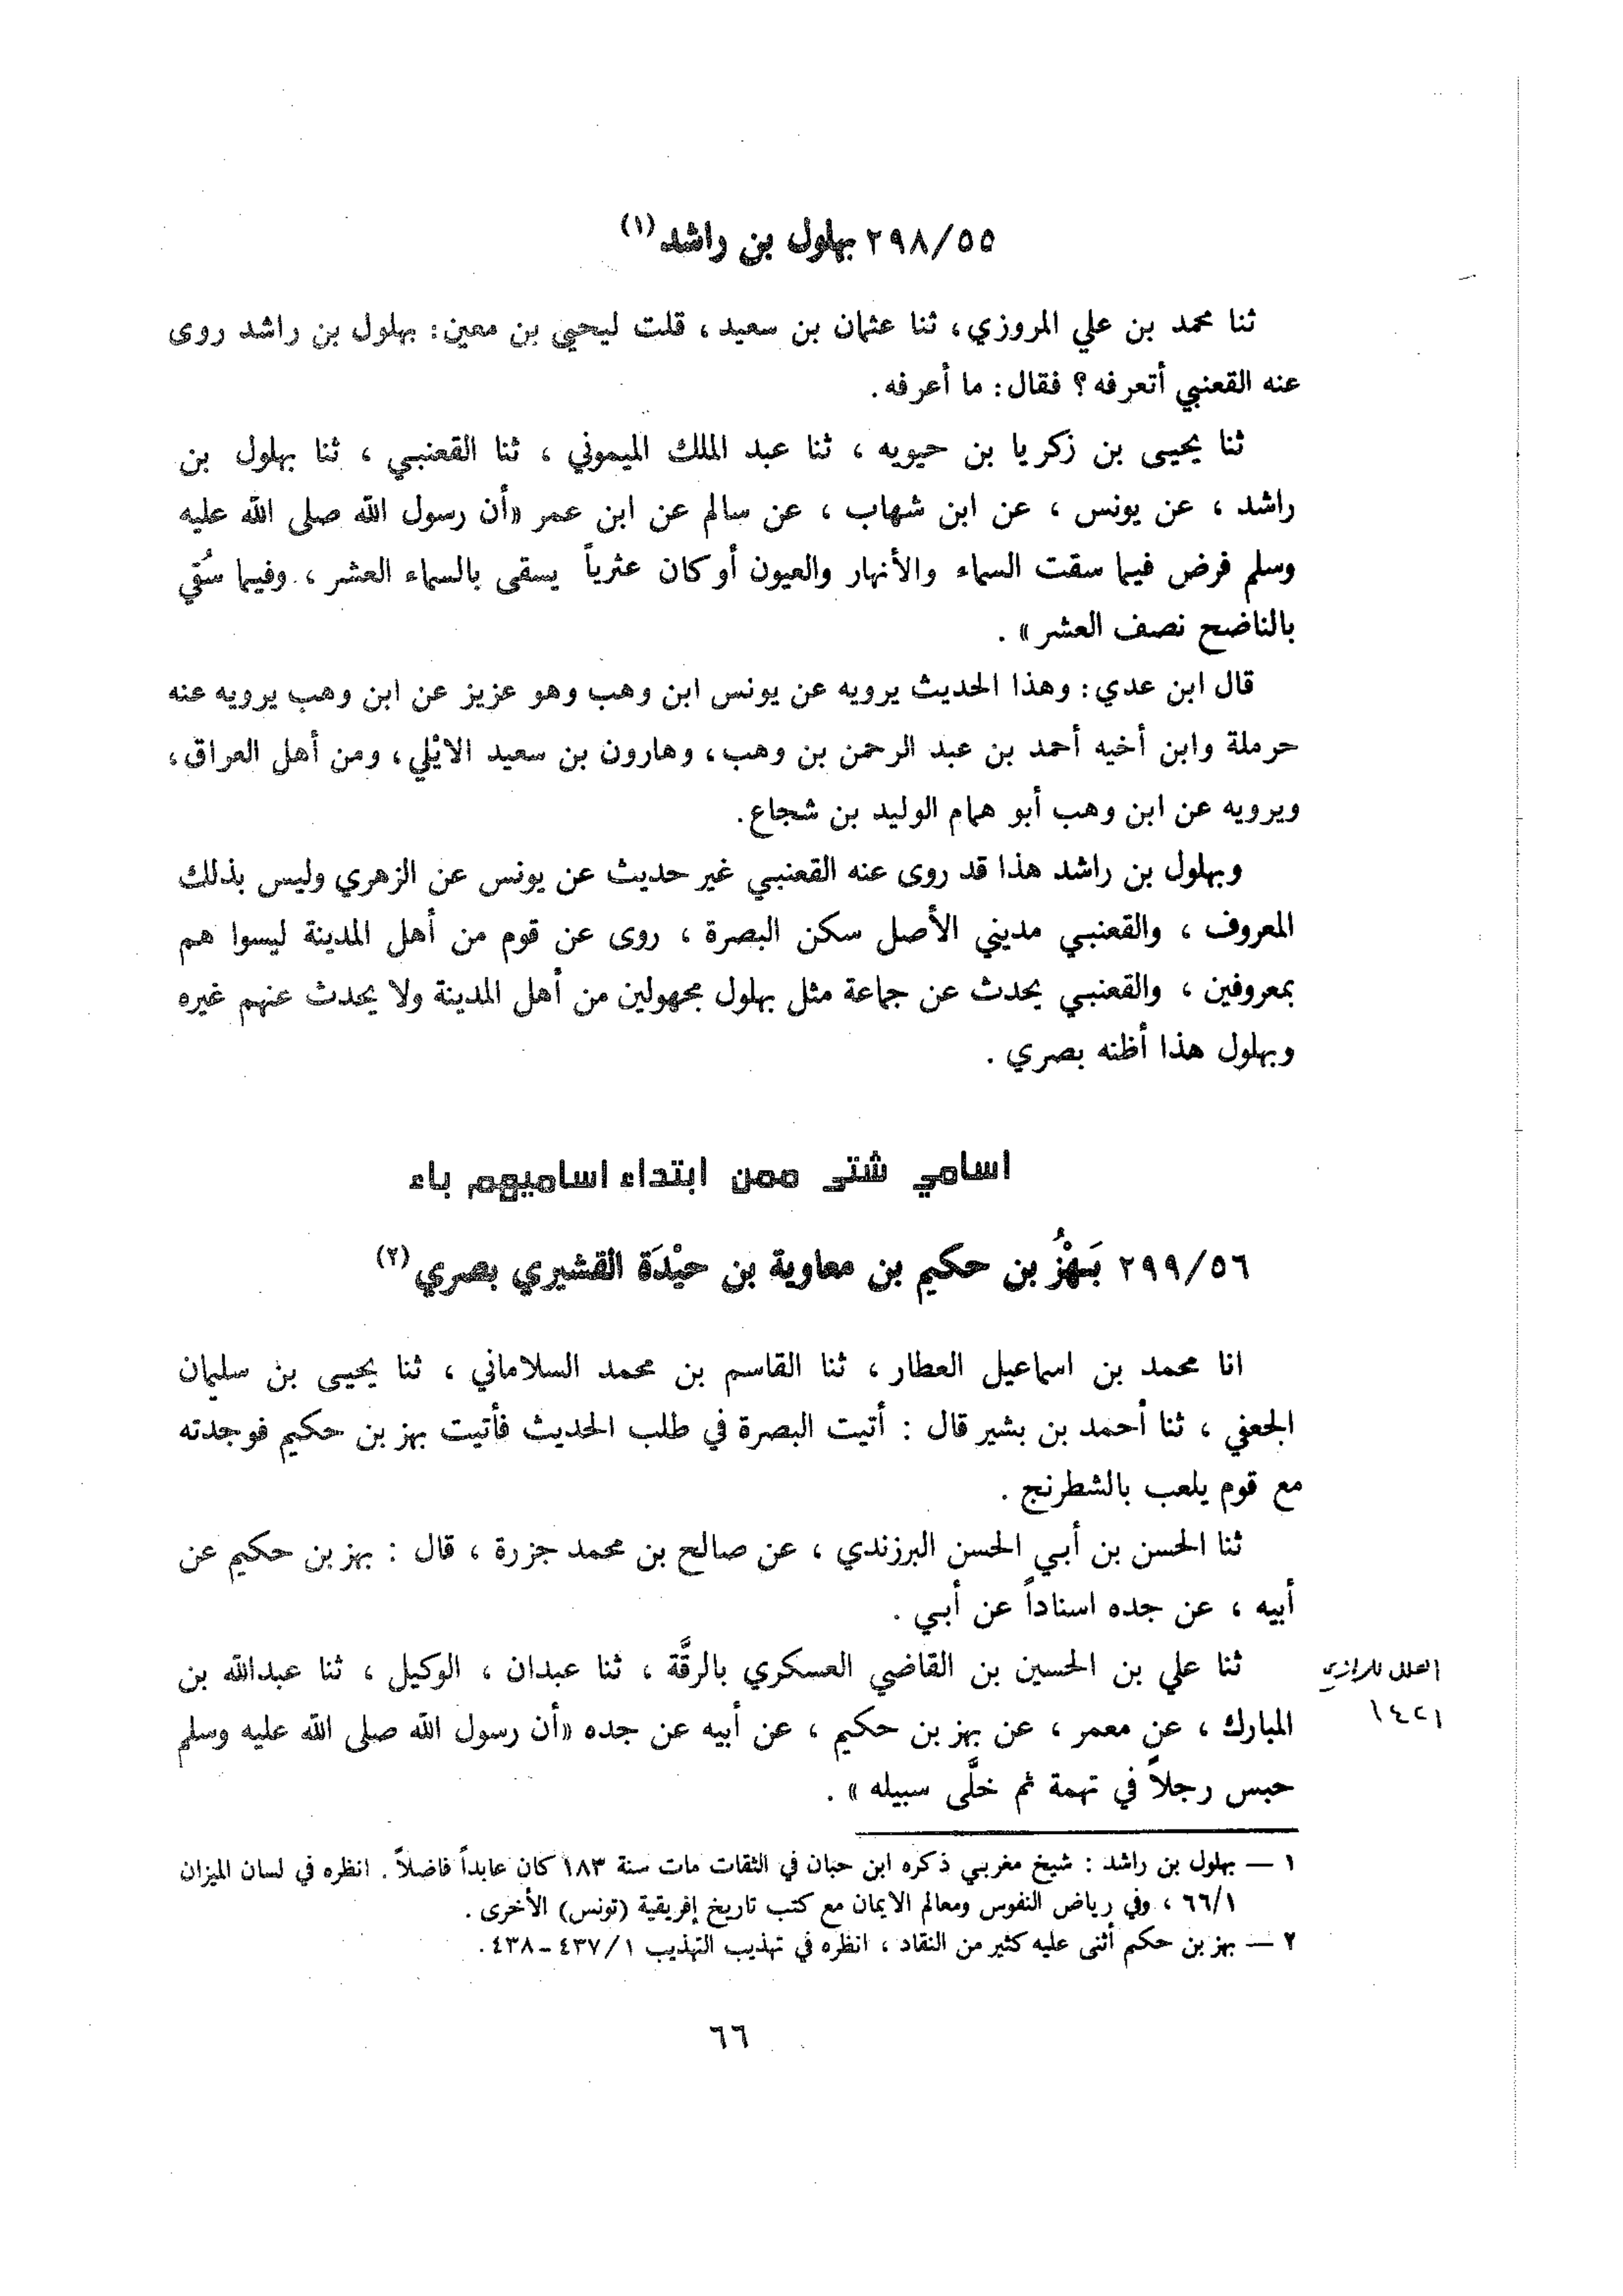 ٢٩٨/٥٥ بهلول بن راشد (١)
ثنا محمد بن علي المروزي، ثنا عثمان بن سعيد، قلت ليحيى بن معين: بهلول بن راشد روى
عنه القعنبي أتعرفه؟ فقال: ما أعرفه.
ثنا يحيى بن زكريا بن حيويه، ثنا عبد الملك الميموني، ثنا القعنبي، ثنا بهلول بن
راشد، عن يونس، عن ابن شهاب، عن سالم عن ابن عمر «أن رسول الله صلى الله عليه
وسلم فرض فيما سقت السماء والأنهار والعيون أو كان عثرياً يسقى بالسماء العشر، وفيما سُقي
بالناضح نصف العشر».
قال ابن عدي: وهذا الحديث يرويه عن يونس ابن وهب وهو عزيز عن ابن وهب يرويه عنه
حرملة وابن أخيه أحمد بن عبد الرحمن بن وهب، وهارون بن سعيد الايْلي، ومن أهل العراق،
ويرويه عن ابن وهب أبو همام الوليد بن شجاع.
وبهلول بن راشد هذا قد روى عنه القعنبي غير حديث عن يونس عن الزهري وليس بذلك
المعروف، والقعنبي مديني الأصل سكن البصرة، روى عن قوم من أهل المدينة ليسوا هم
بمعروفين، والقعنبي يحدث عن جماعة مثل بهلول مجهولين من أهل المدينة ولا يحدث عنهم غيره
وبهلول هذا أظنه بصري.
اسامي شتى ممن ابتداء اساميهم باء
٢٩٩/٥٦ بَهْزُ بن حكيم بن معاوية بن حيْدَة القشيري بصري (٢)
انا محمد بن اسماعيل العطار، ثنا القاسم بن محمد السلاماني، ثنا يحيى بن سليمان
الجعفي، ثنا أحمد بن بشير قال: أتيت البصرة في طلب الحديث فأتيت بهز بن حكيم فوجدته
مع قوم يلعب بالشطرنج.
ثنا الحسن بن أبي الحسن البرزندي، عن صالح بن محمد جزرة، قال: بهز بن حكيم عن
أبيه، عن جده اسناداً عن أبي.
ثنا علي بن الحسين بن القاضي العسكري بالرقَّة، ثنا عبدان، الوكيل، ثنا عبدالله بن
المبارك، عن معمر، عن بهز بن حكيم، عن أبيه عن جده «أن رسول الله صلى الله عليه وسلم
حبس رجلاً في تهمة ثم خلَّى سبيله».
العلل للرازي
١ — بهلول بن راشد: شيخ مغربي ذكره ابن حبان في الثقات مات سنة ١٨٣ كان عابداً فاضلاً. انظره في لسان الميزان
٦٦/١، وفي رياض النفوس ومعالم الايمان مع كتب تاريخ إفريقية (تونس) الأخرى.
٢ — بهز بن حكم أثنى عليه كثير من النقاد، انظره في تهذيب التهذيب ٤٣٧/١-٤٣٨.
٦٦